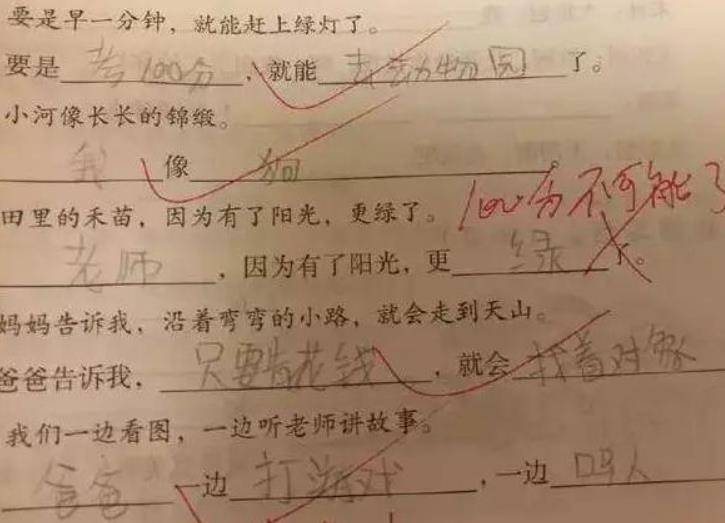 要是早一分钟，就能赶上绿灯了。
要是 考100分 ，就能 去动物园 了。
小河像长长的锦缎。
我 像 狗 。
田里的禾苗，因为有了阳光，更绿了。
100分不可能了
老师 ，因为有了阳光，更 绿 了。
妈妈告诉我，沿着弯弯的小路，就会走到天山。
爸爸告诉我， 只要肯花钱 ，就会 找着对象
我们一边看图，一边听老师讲故事。
爸爸 一边 打游戏 ，一边 骂人